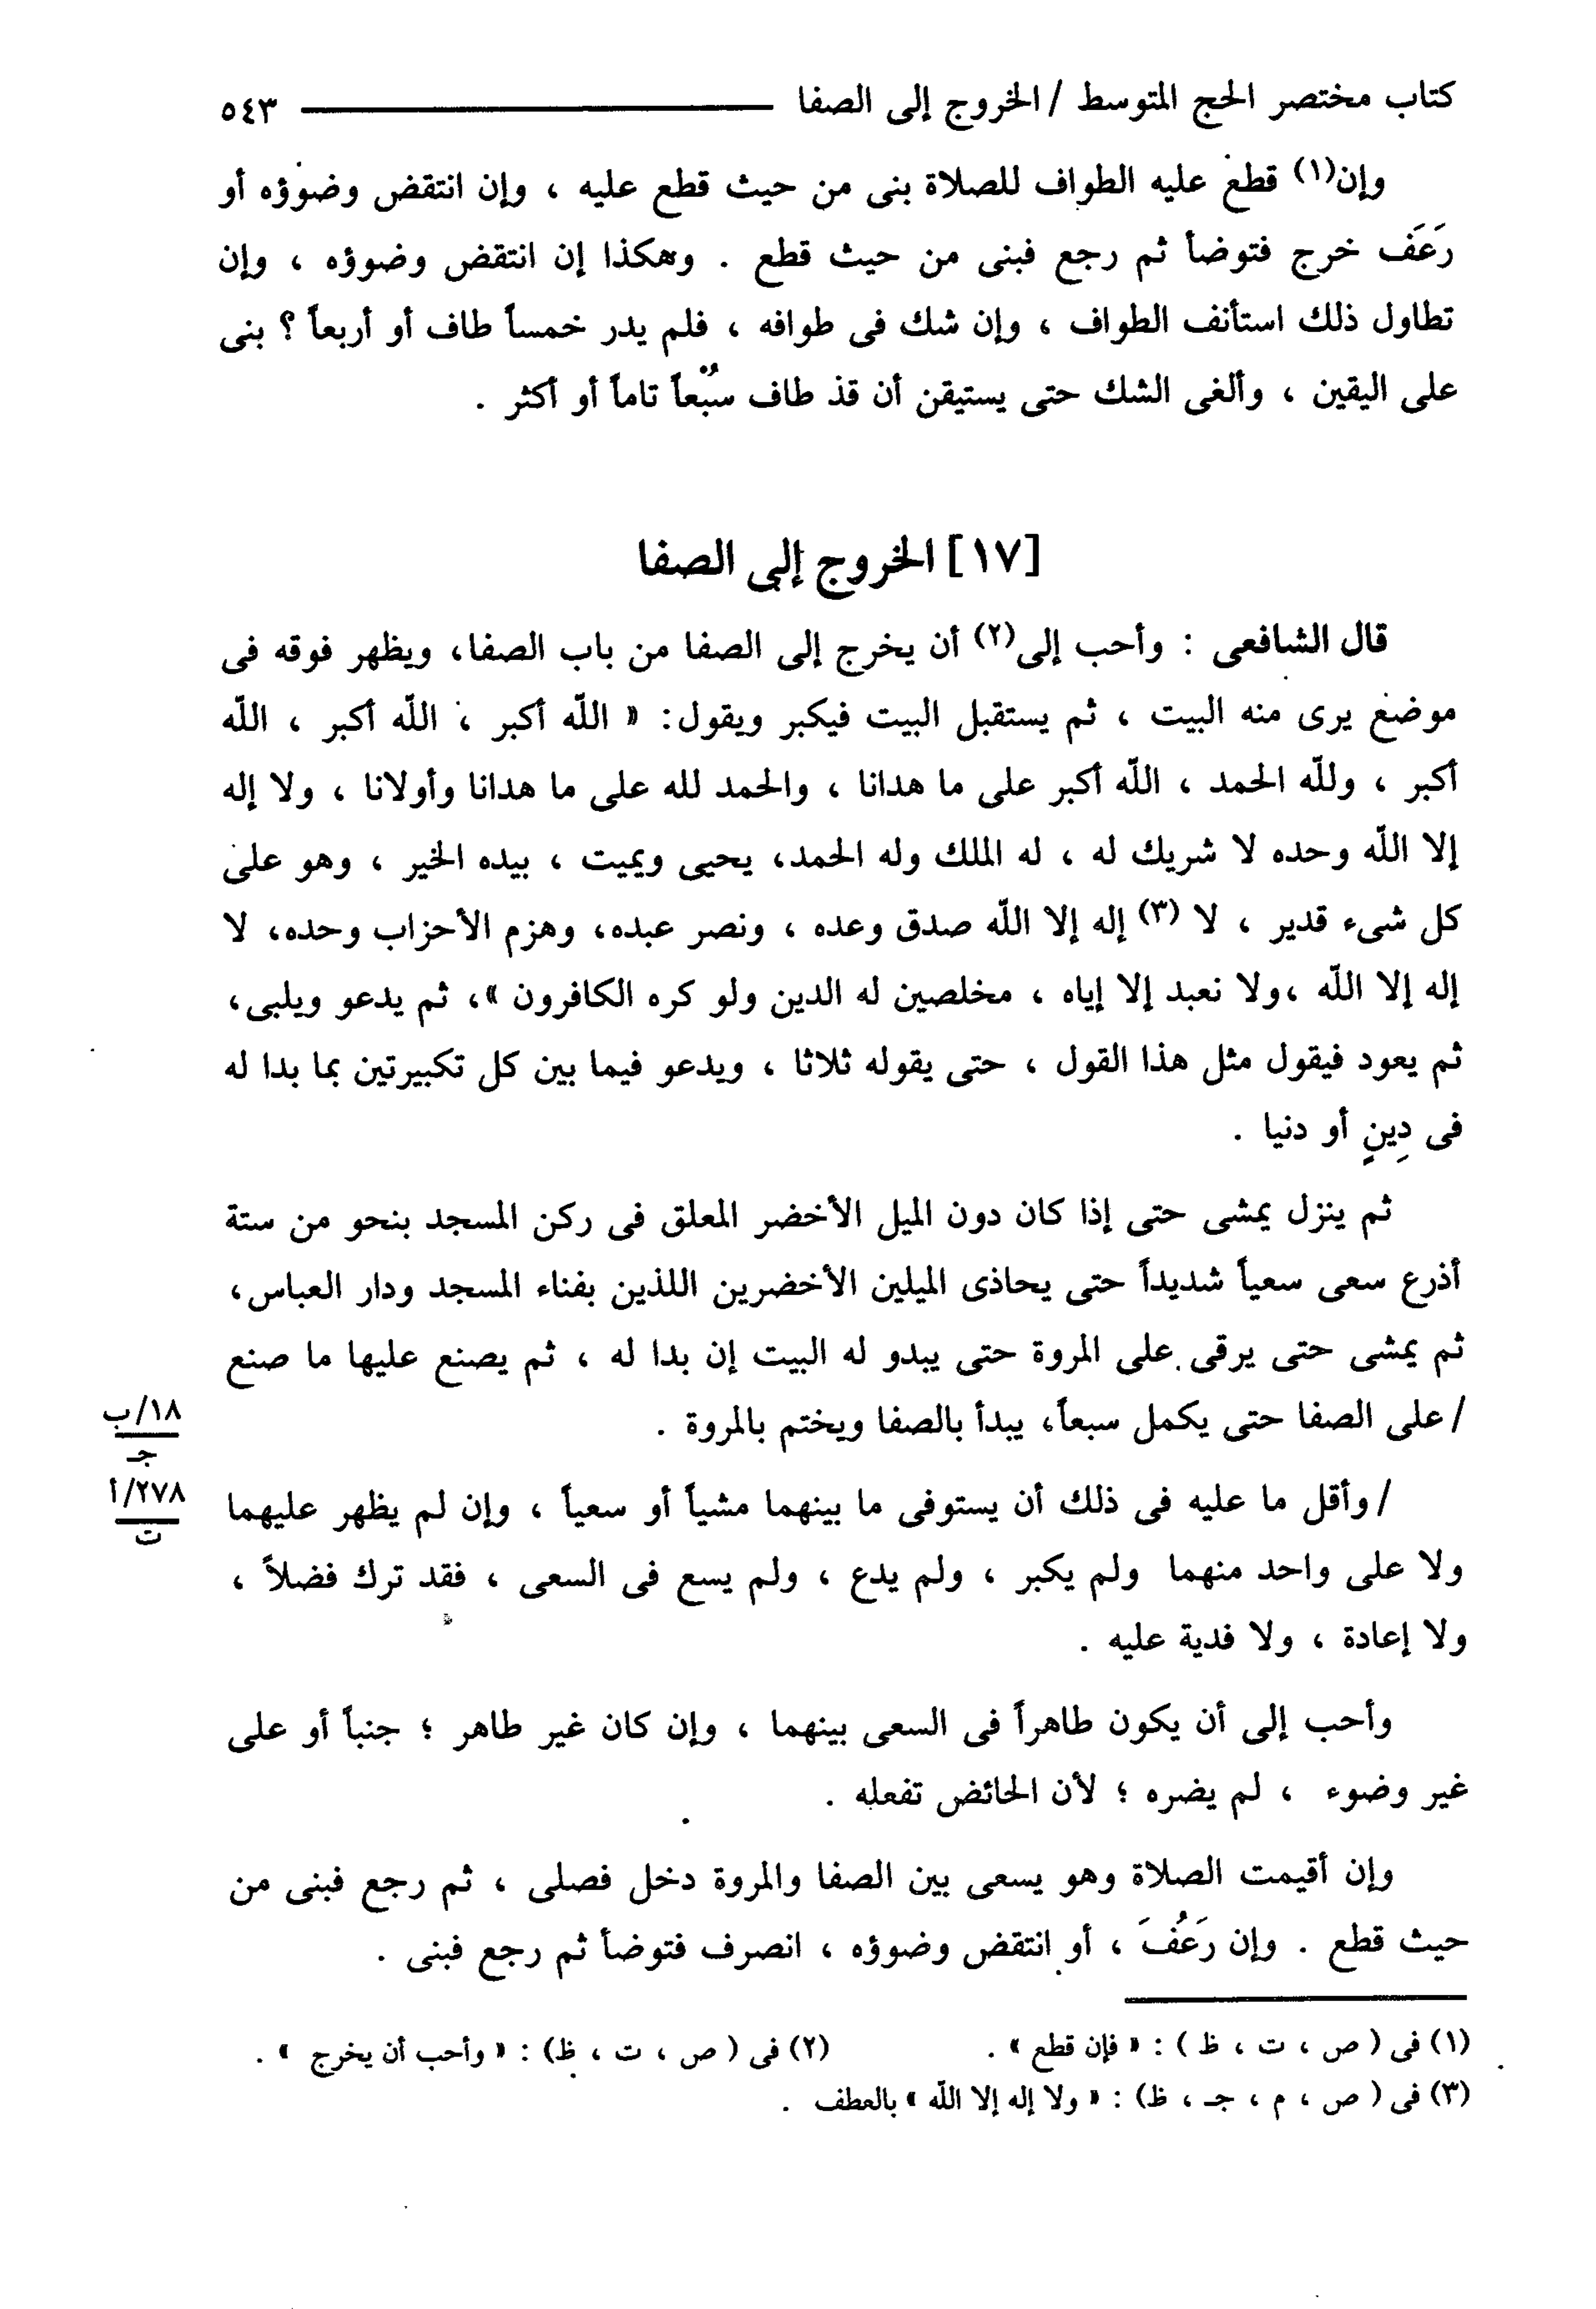 كتاب مختصر الحج المتوسط / الخروج إلى الصفا ــــــــــــ ٥٤٣
وإن(١) قطع عليه الطواف للصلاة بنى من حيث قطع عليه ، وإن انتقض وضوؤه أو
رَعَف خرج فتوضأ ثم رجع فبنى من حيث قطع . وهكذا إن انتقض وضوؤه ، وإن
تطاول ذلك استأنف الطواف ، وإن شك فى طوافه ، فلم يدر خمساً طاف أو أربعاً ؟ بنى
على اليقين ، وألغى الشك حتى يستيقن أن قد طاف سُبْعاً تاماً أو أكثر .
[١٧] الخروج إلى الصفا
قال الشافعى : وأحب إلى(٢) أن يخرج إلى الصفا من باب الصفا، ويظهر فوقه فى
موضع يرى منه البيت ، ثم يستقبل البيت فيكبر ويقول: « اللّه أكبر ، اللّه أكبر ، اللّه
أكبر ، وللّه الحمد ، اللّه أكبر على ما هدانا ، والحمد لله على ما هدانا وأولانا ، ولا إله
إلا اللّه وحده لا شريك له ، له الملك وله الحمد، يحيى ويميت ، بيده الخير ، وهو على
كل شىء قدير ، لا (٣) إله إلا اللّه صدق وعده ، ونصر عبده، وهزم الأحزاب وحده، لا
إله إلا اللّه ،ولا نعبد إلا إياه ، مخلصين له الدين ولو كره الكافرون »، ثم يدعو ويلبى،
ثم يعود فيقول مثل هذا القول ، حتى يقوله ثلاثا ، ويدعو فيما بين كل تكبيرتين بما بدا له
فى دِينٍ أو دنيا .
ثم ينزل يمشى حتى إذا كان دون الميل الأخضر المعلق فى ركن المسجد بنحو من ستة
أذرع سعى سعياً شديداً حتى يحاذى الميلين الأخضرين اللذين بفناء المسجد ودار العباس،
ثم يمشى حتى يرقى على المروة حتى يبدو له البيت إن بدا له ، ثم يصنع عليها ما صنع
/ على الصفا حتى يكمل سبعاً، يبدأ بالصفا ويختم بالمروة .
١٨/ب
جـ
/ وأقل ما عليه فى ذلك أن يستوفى ما بينهما مشياً أو سعياً ، وإن لم يظهر عليهما
٢٧٨/أ
ت
ولا على واحد منهما ولم يكبر ، ولم يدع ، ولم يسع فى السعى ، فقد ترك فضلاً ،
ولا إعادة ، ولا فدية عليه .
وأحب إلى أن يكون طاهراً فى السعى بينهما ، وإن كان غير طاهر ؛ جنباً أو على
غير وضوء ، لم يضره ؛ لأن الحائض تفعله .
وإن أقيمت الصلاة وهو يسعى بين الصفا والمروة دخل فصلى ، ثم رجع فبنى من
حيث قطع . وإن رَعُفَ ، أو انتقض وضوؤه ، انصرف فتوضأ ثم رجع فبنى .
(١) فى ( ص ، ت ، ظ ) : « فإن قطع » .
(٢) فى ( ص ، ت ، ظ) : « وأحب أن يخرج » .
(٣) فى ( ص ، م ، جـ ، ظ) : « ولا إله إلا اللّه » بالعطف .